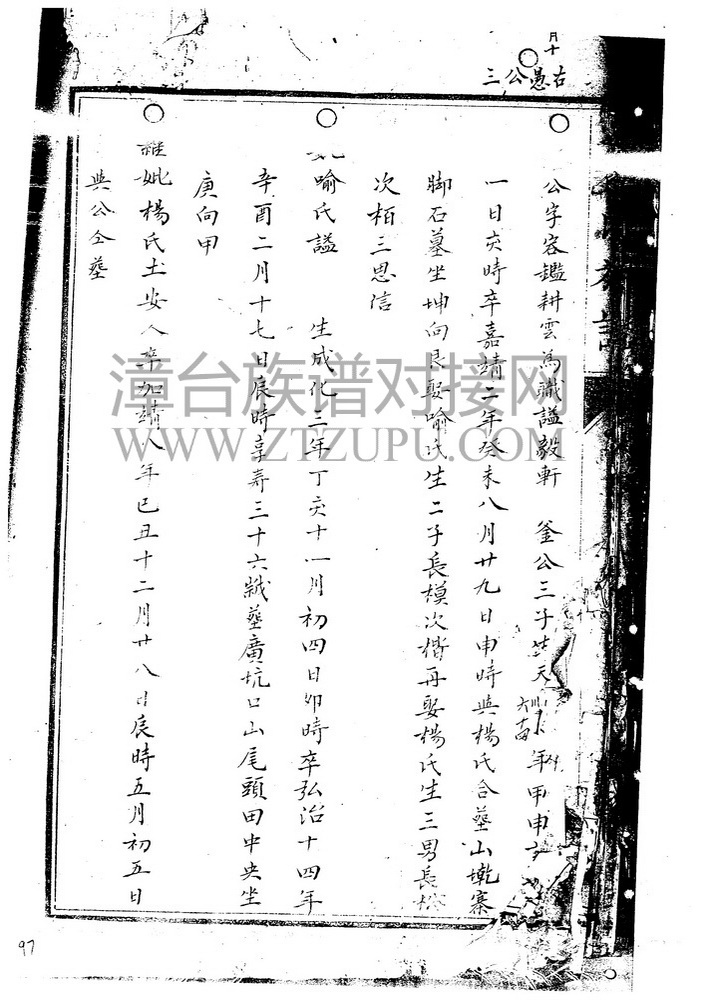 月十
右愚公三
公字容鑑耕雲為職謚毅軒　釜公三子　天　年甲申
六十四
一日亥時卒嘉靖二年癸未八月廿九日申時與楊氏合墓山墘寨
脚石墓坐坤向艮娶喻氏生二子長模次楷再娶楊氏生三男長松
次栢三思信
喻氏謚　生成化三年丁亥十一月初四日卯時卒弘治十四年
辛酉二月十七日辰時享壽三十六歲墓廣坑口山尾頭田中央坐
庚向甲
継妣楊氏土安人卒加靖八年已丑十二月廿八日辰時五月初五日
與公仝墓
漳台族谱对接网
WWW.ZTZUPU.COM
97